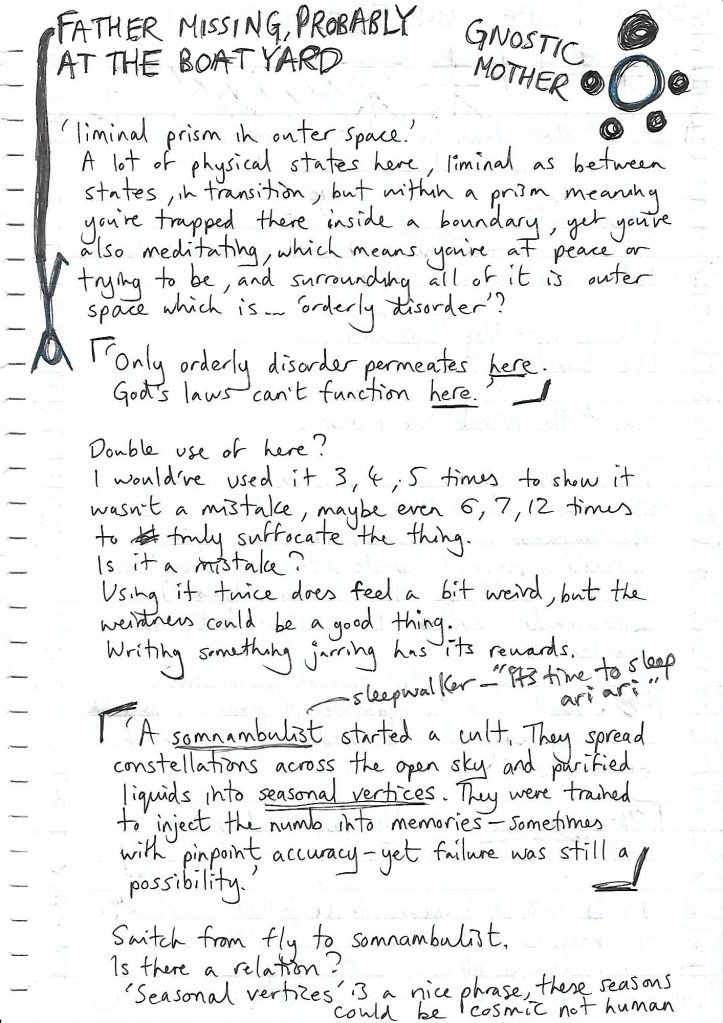 FATHER MISSING, PROBABLY
AT THE BOAT YARD
GNOSTIC
MOTHER
'liminal prism in outer space.'
A lot of physical states here, liminal as between
states, in transition, but within a prism meaning
you're trapped there inside a boundary, yet you're
also meditating, which means you're at peace or
trying to be, and surrounding all of it is outer
space which is... 'orderly disorder'?
'Only orderly disorder permeates here.
God's laws can't function here.'
Double use of here?
I would've used it 3, 4, 5 times to show it
wasn't a mistake, maybe even 6, 7, 12 times
to truly suffocate the thing.
Is it a mistake?
Using it twice does feel a bit weird, but the
weirdness could be a good thing.
Writing something jarring has its rewards.
sleepwalker - "it's time to sleep
ari ari"
'A somnambulist started a cult. They spread
constellations across the open sky and purified
liquids into seasonal vertices. They were trained
to inject the numb into memories - sometimes
with pinpoint accuracy - yet failure was still a
possibility.'
Switch from fly to somnambulist.
Is there a relation?
'Seasonal vertices' is a nice phrase, these seasons
could be cosmic not human